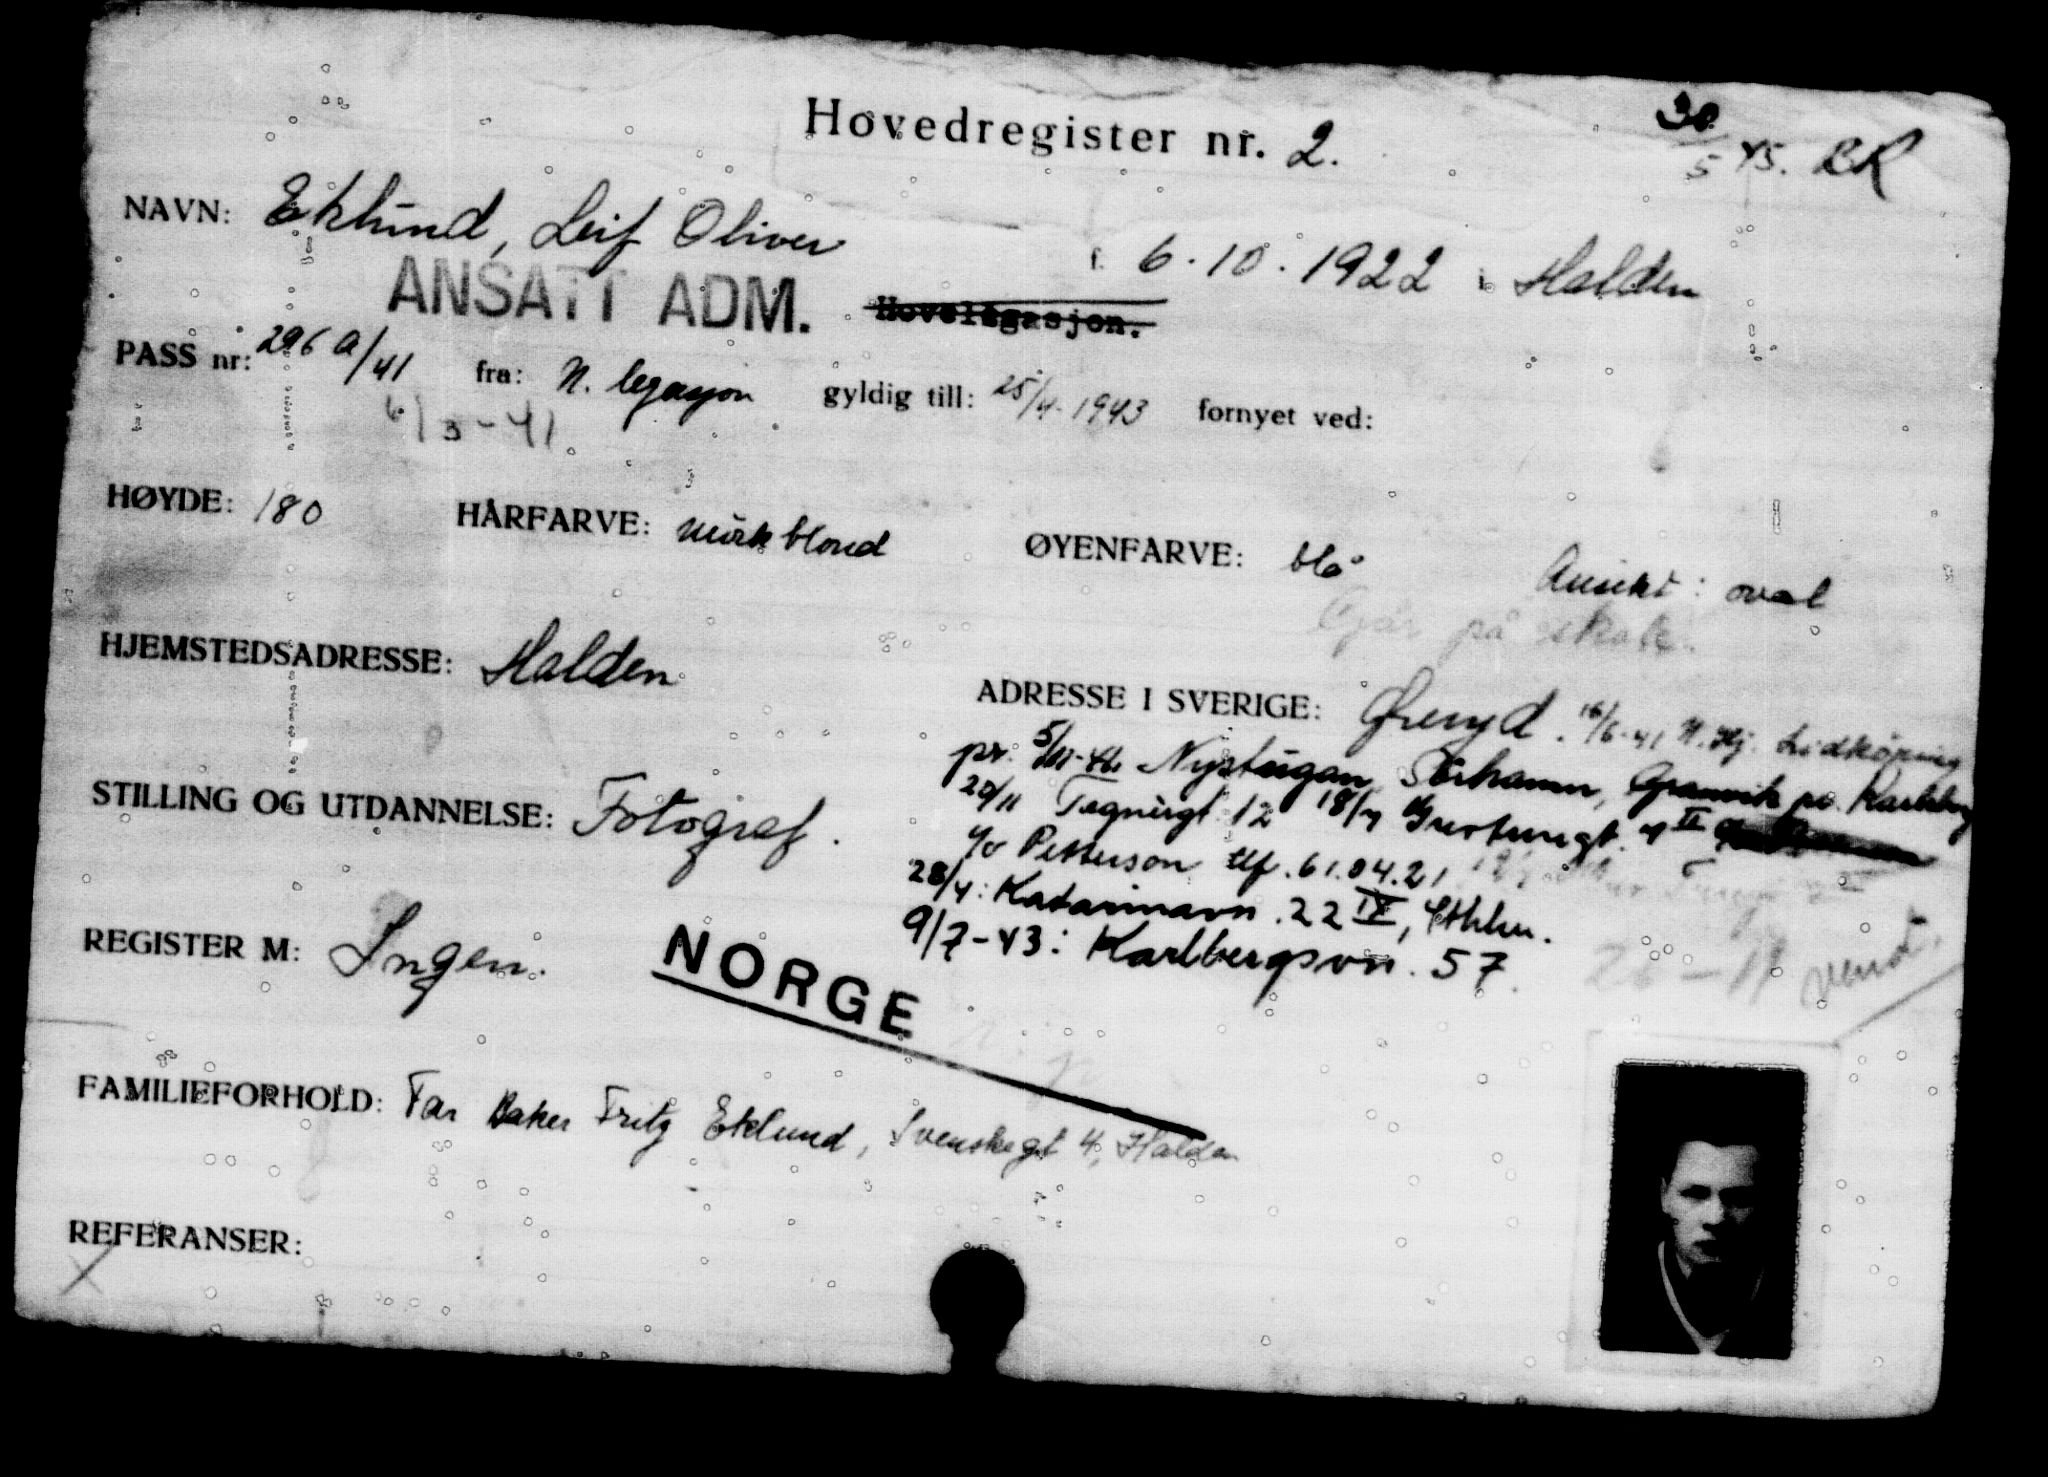 Hovedregister nr. 2.
30/5 45. RK
NAVN: Eklund, Leif Oliver f. 6.10.1922 i Halden
ANSATT ADM. Hovelegasjon.
PASS nr: 296 a/41 fra: N. legasjon gyldig till: 25/4-1943 fornyet ved:
6/3-41.
HØYDE: 180 HÅRFARVE: mörkblond ØYENFARVE: blå Ansikt: oval
Går på skole.
HJEMSTEDSADRESSE: Halden
ADRESSE I SVERIGE: Øreryd. 16/6-41 N. Hj. Lidköping
pr. Nystugan, Granvik pr. Karlsborg
STILLING OG UTDANNELSE: Fotograf.
20/11 Tegnérgt. 12 18/4 II
c/o Petterson tlf. 61.04.21
28/4: Katarinavn. 22 IV, Sthlm.
REGISTER M: Ingen.
9/7-43: Karlbergsvn. 57.
vend.
NORGE
FAMILIEFORHOLD: Far Baker Fritz Eklund, Svenskegt 4, Halden
REFERANSER:
X